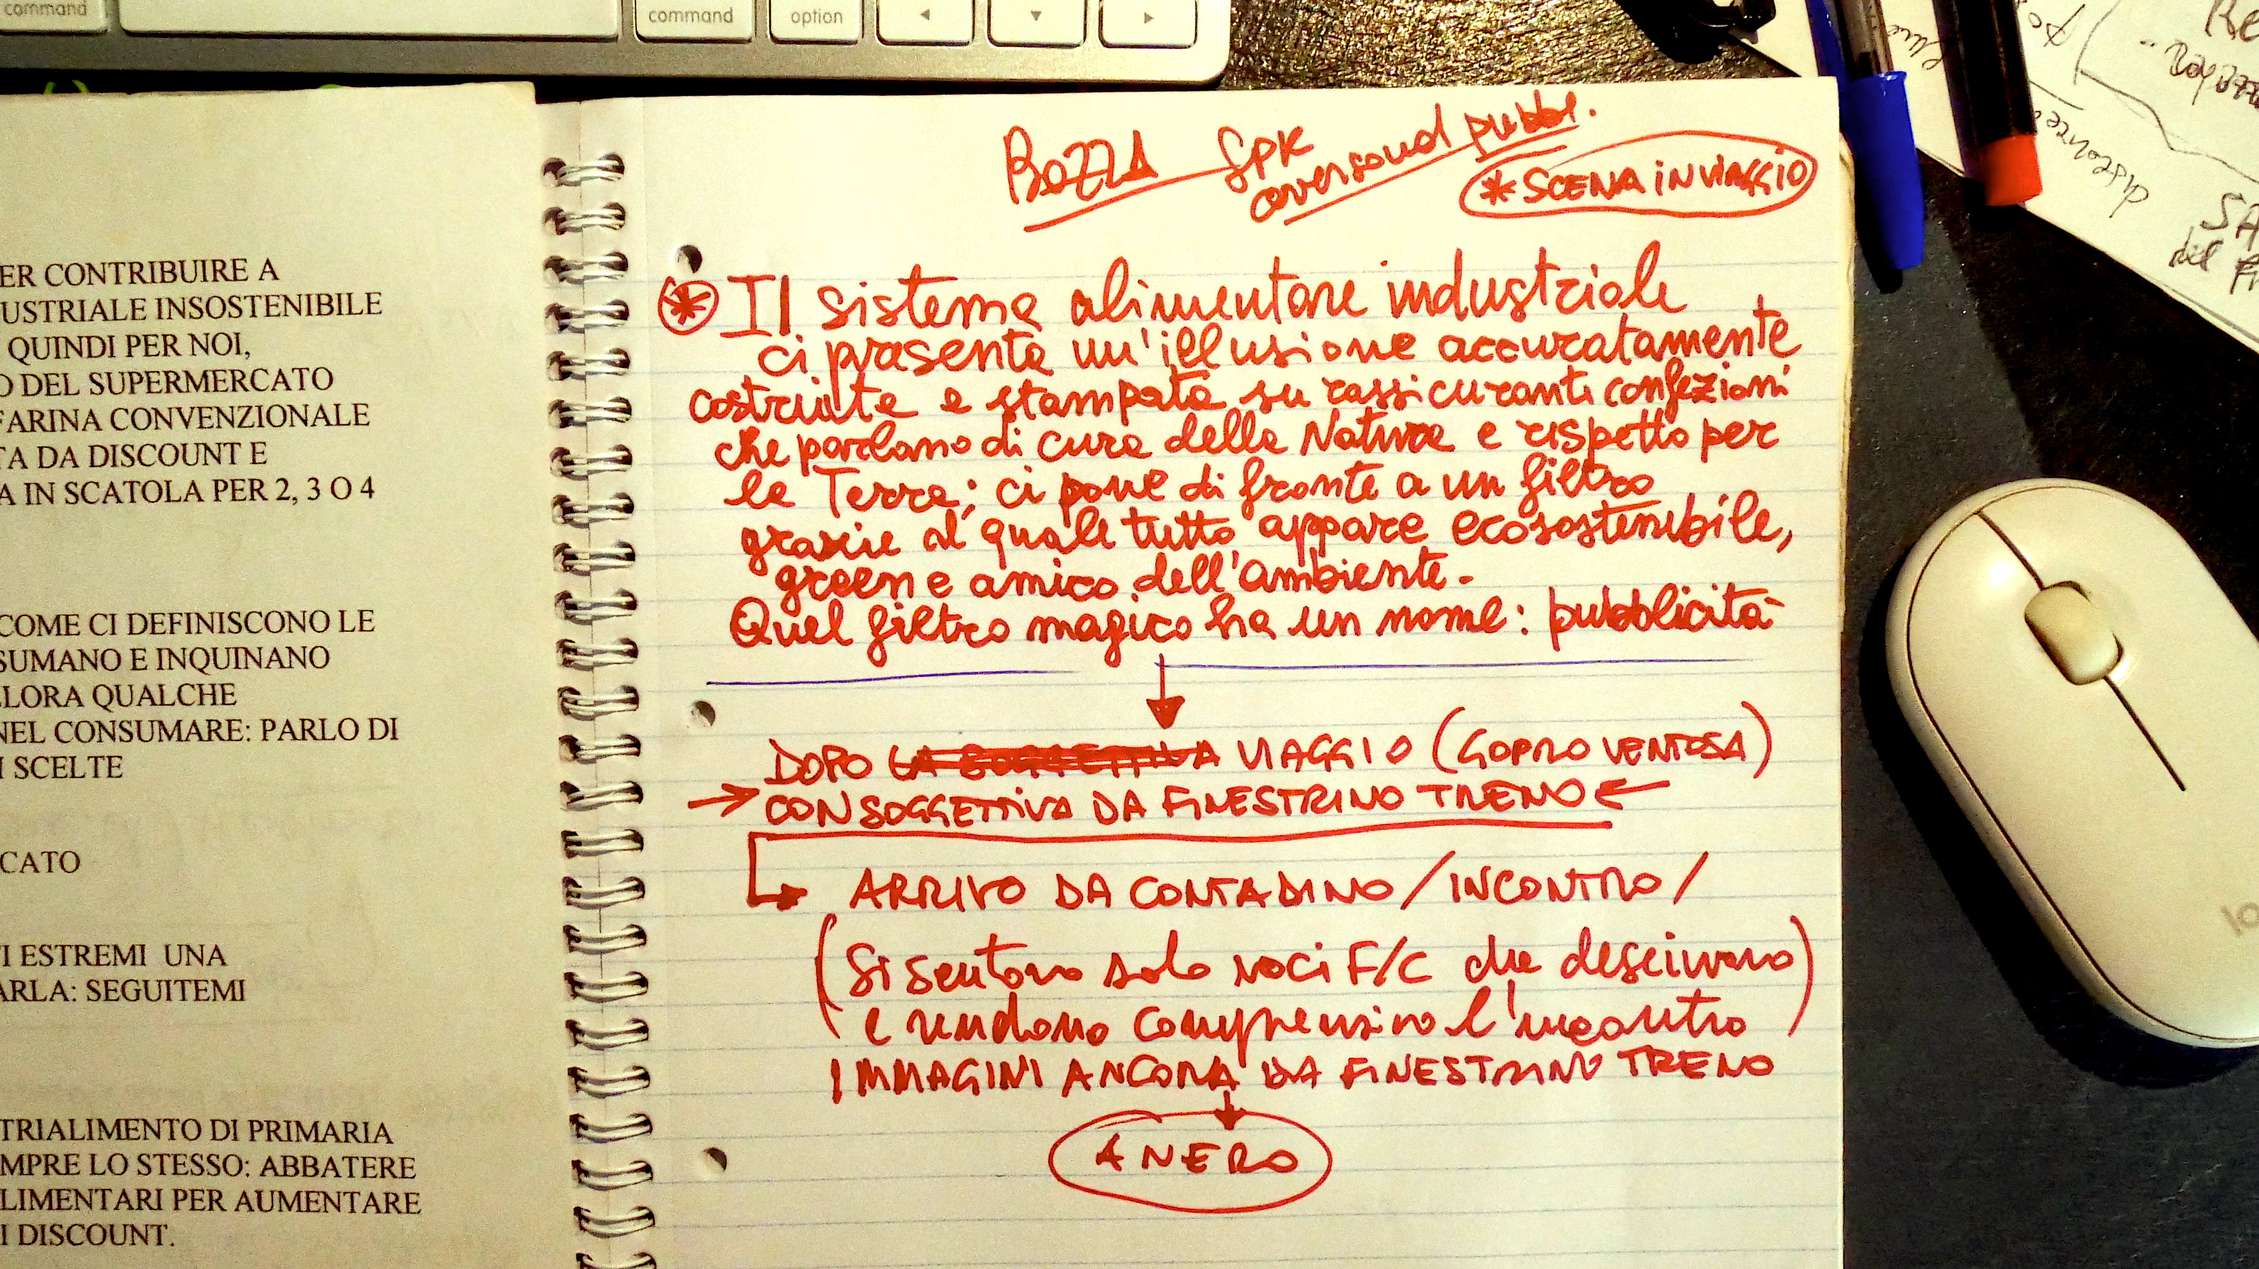 command
command
option
ER CONTRIBUIRE A
USTRIALE INSOSTENIBILE
QUINDI PER NOI,
O DEL SUPERMERCATO
FARINA CONVENZIONALE
TA DA DISCOUNT E
A IN SCATOLA PER 2, 3 O 4
COME CI DEFINISCONO LE
SUMANO E INQUINANO
LLORA QUALCHE
NEL CONSUMARE: PARLO DI
I SCELTE
CATO
TI ESTREMI UNA
ARLA: SEGUITEMI
TRIALIMENTO DI PRIMARIA
MPRE LO STESSO: ABBATERE
LIMENTARI PER AUMENTARE
I DISCOUNT.
BOZZA SPK oversound pubbl.
* SCENA IN VIAGGIO
* Il sistema alimentare industriale
ci presenta un'illusione accuratamente
costruita e stampata su rassicuranti confezioni
che parlano di cura della Natura e rispetto per
la Terra; ci pone di fronte a un filtro
grazie al quale tutto appare ecosostenibile,
green e amico dell'ambiente.
Quel filtro magico ha un nome: pubblicità
DOPO VIAGGIO (GOPRO VENTOSA)
→ CON SOGGETTIVA DA FINESTRINO TRENO ←
ARRIVO DA CONTADINO / INCONTRO /
(Si sentono solo voci F/C che descrivono
e rendono comprensivo l'incontro)
IMMAGINI ANCORA DA FINESTRINO TRENO
A NERO